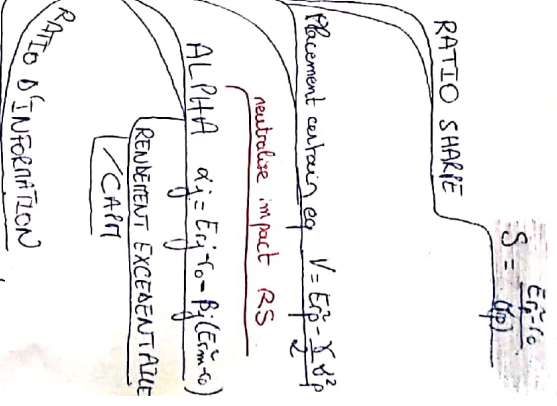 RATIO SHARPE
S = (Er̃p - r₀) / (σp)
Placement certain eq V = Er̃p - γ/2 σ²p
neutralise impact RS
ALPHA αj = Er̃j - r₀ - βj(Er̃m - r₀)
RENDEMENT EXCEDENTAIRE
/CAPM
RATIO D'INFORMATION